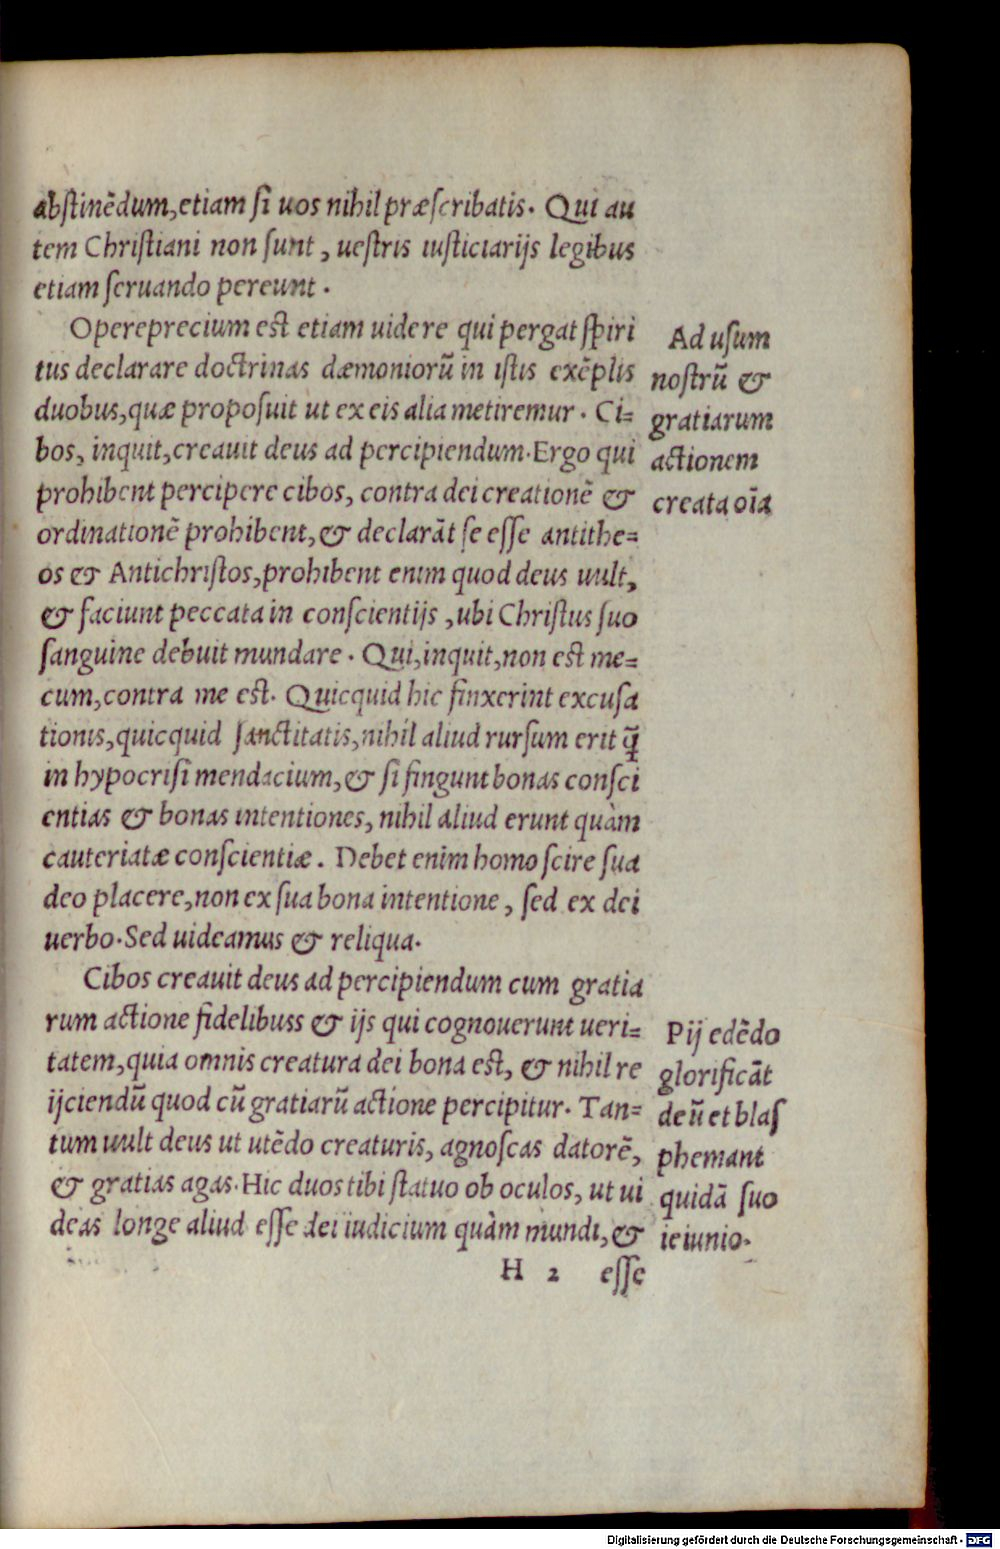 abstinēdum,etiam si uos nihil præscribatis. Qui au
tem Christiani non sunt, uestris iusticiarijs legibus
etiam seruando pereunt.
Opereprecium est etiam uidere qui pergat spiri
tus declarare doctrinas dæmoniorū in istis exēplis
duobus,quæ proposuit ut ex eis alia metiremur. Ci=
bos, inquit,creauit deus ad percipiendum.Ergo qui
prohibent percipere cibos, contra dei creationē &
ordinationē prohibent,& declarāt se esse antithe=
os & Antichristos,prohibent enim quod deus uult,
& faciunt peccata in conscientijs ,ubi Christus suo
sanguine debuit mundare. Qui,inquit,non est me=
cum,contra me est. Quicquid hic finxerint excusa
tionis,quicquid sanctitatis,nihil aliud rursum erit q̄
in hypocrisi mendacium,& si fingunt bonas consci
entias & bonas intentiones, nihil aliud erunt quàm
cauteriatæ conscientiæ. Debet enim homo scire sua
deo placere,non ex sua bona intentione, sed ex dei
uerbo.Sed uideamus & reliqua.
Cibos creauit deus ad percipiendum cum gratia
rum actione fidelibuss & ijs qui cognouerunt ueri=
tatem,quia omnis creatura dei bona est, & nihil re
ijciendū quod cū gratiarū actione percipitur. Tan=
tum uult deus ut utēdo creaturis, agnoscas datorē,
& gratias agas.Hic duos tibi statuo ob oculos, ut ui
deas longe aliud esse dei iudicium quàm mundi,&
H 2 esse
Ad usum
nostrū &
gratiarum
actionem
creata oīa
Pij edēdo
glorificāt
deū et blas
phemant
quidā suo
ieiunio.
Digitalisierung gefördert durch die Deutsche Forschungsgemeinschaft - DFG